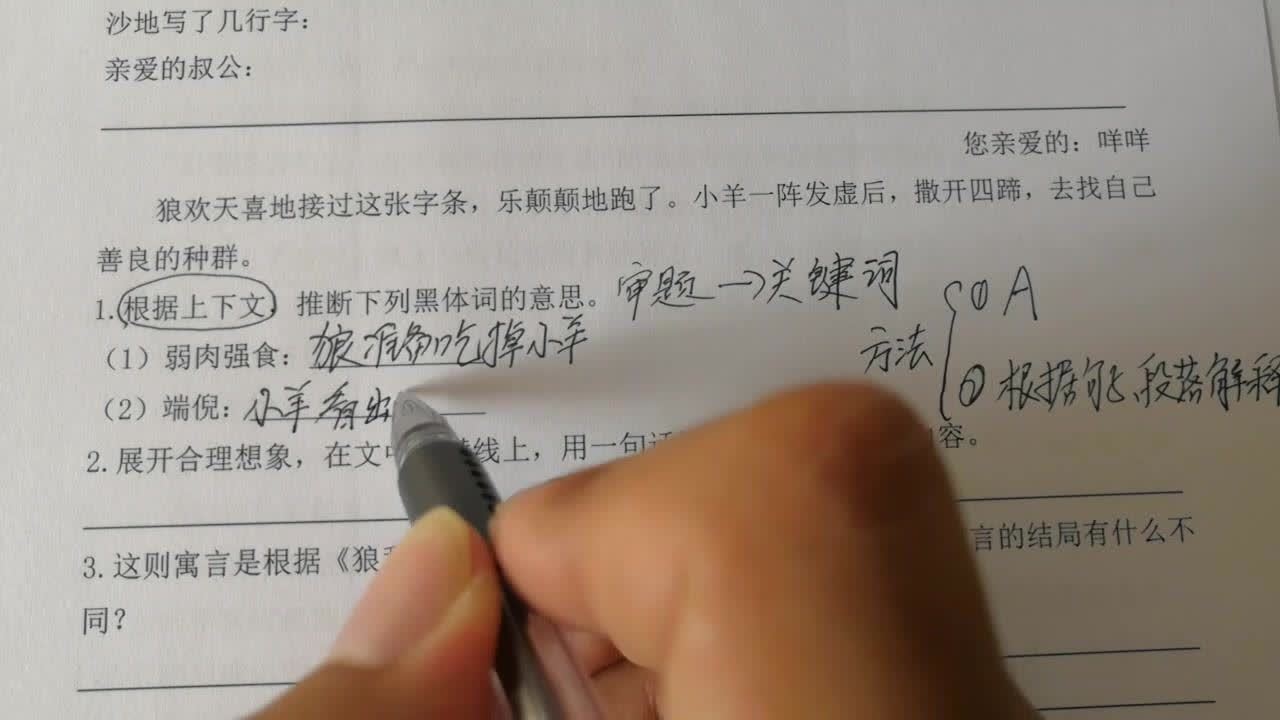 沙地写了几行字：
亲爱的叔公：
您亲爱的：咩咩
狼欢天喜地接过这张字条，乐颠颠地跑了。小羊一阵发虚后，撒开四蹄，去找自己
善良的种群。
1.根据上下文，推断下列黑体词的意思。 审题→关键词
（1）弱肉强食：狼准备吃掉小羊
方法 { ① A
② 根据句子、段落解释
（2）端倪：小羊看出
2.展开合理想象，在文 线上，用一句 容。
3.这则寓言是根据《狼 言的结局有什么不
同？